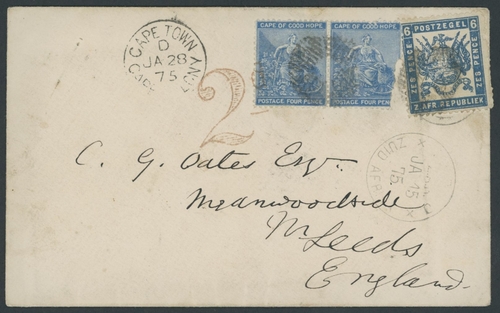 CAPE TOWN
D
JA 28
75
CAPE COLONY
CAPE OF GOOD HOPE
POSTAGE FOUR PENCE
CAPE OF GOOD HOPE
POSTAGE FOUR PENCE
6 POSTZEGEL 6
ZES PENCE
ZES PENCE
Z. AFR. REPUBLIEK
2
JA 15
75
ZUID AFR
C. G. Oates Esqr.
Meanwoodside
Nr Leeds
England